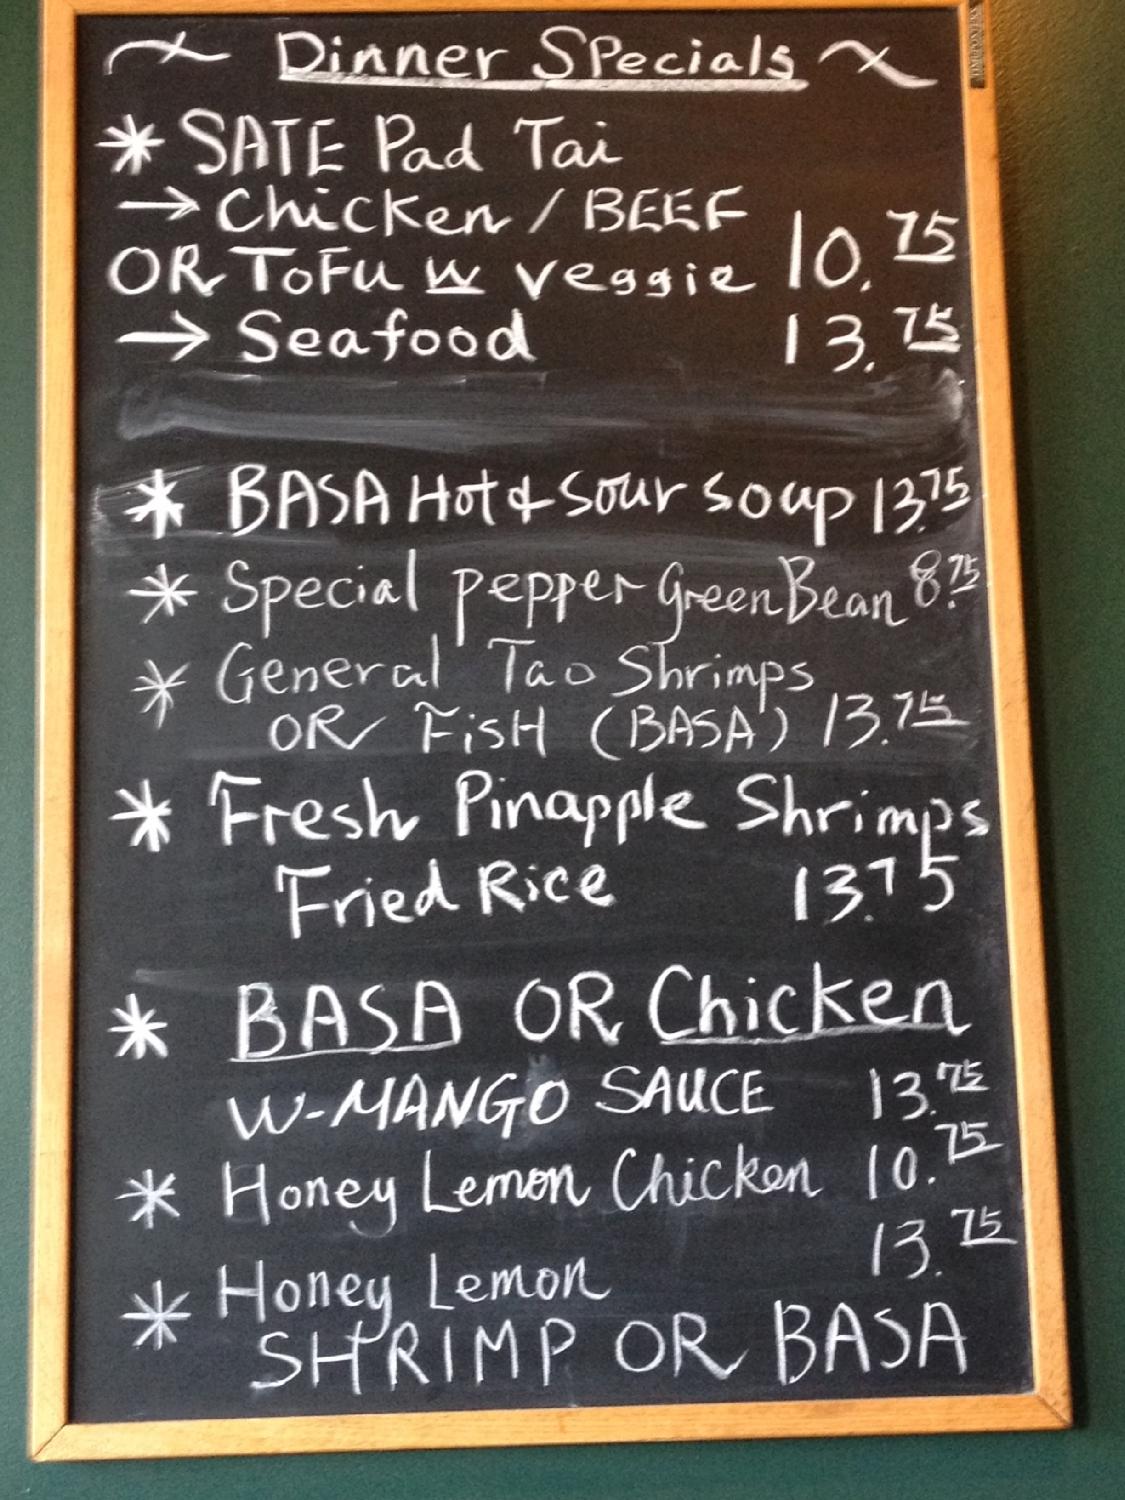 Dinner SPecials
* SATE Pad Tai
→ Chicken / BEEF
OR ToFu w veggie 10.75
→ Seafood 13.75
* BASA Hot & Sour Soup 13.75
* Special pepper Green Bean 8.75
* General Tao Shrimps
OR FiSH (BASA) 13.75
* Fresh Pinapple Shrimps
Fried Rice 13.75
* BASA OR Chicken
W-MANGO SAUCE 13.75
* Honey Lemon Chicken 10.75
13.75
* Honey Lemon
SHRIMP OR BASA